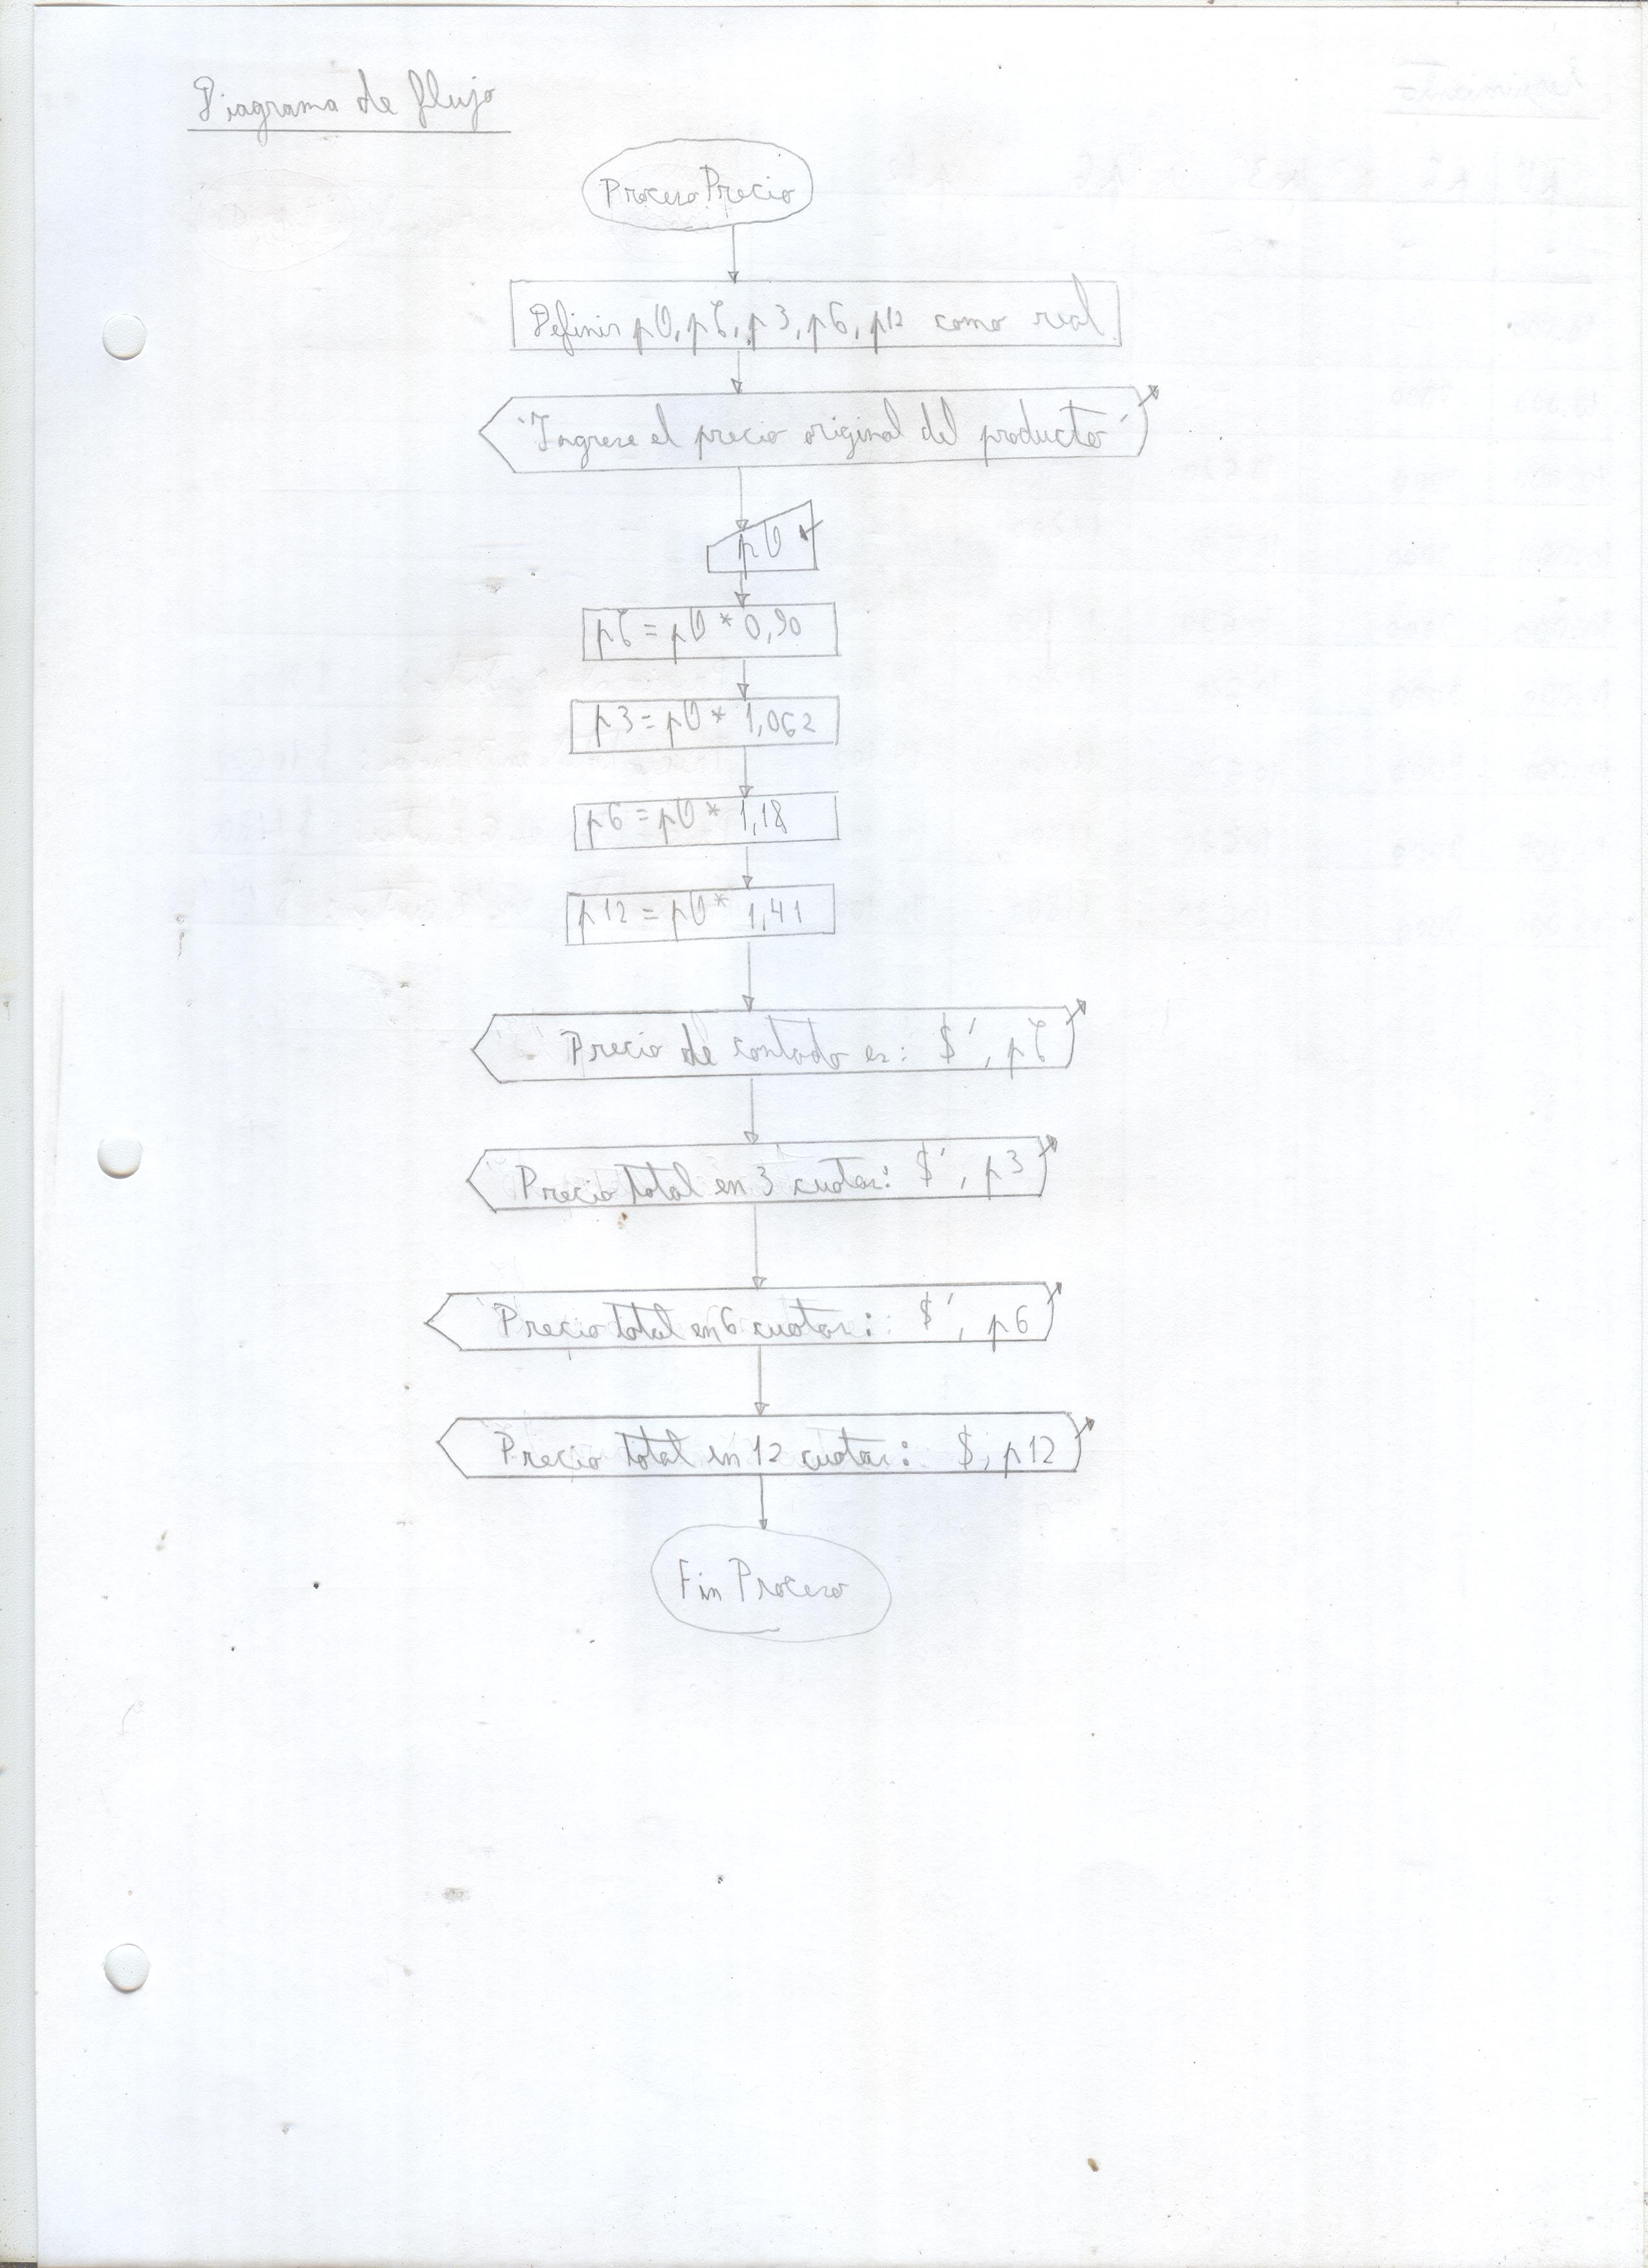 Diagrama de flujo
Proceso Precio
Definir pO, pC, p3, p6, p12 como real
"Ingrese el precio original del producto"
pO
pC = pO * 0,90
p3 = pO * 1,062
p6 = pO * 1,18
p12 = pO * 1,41
Precio de contado es: $', pC
Precio total en 3 cuotas: $', p3
Precio total en 6 cuotas: $', p6
Precio total en 12 cuotas: $, p12
Fin Proceso